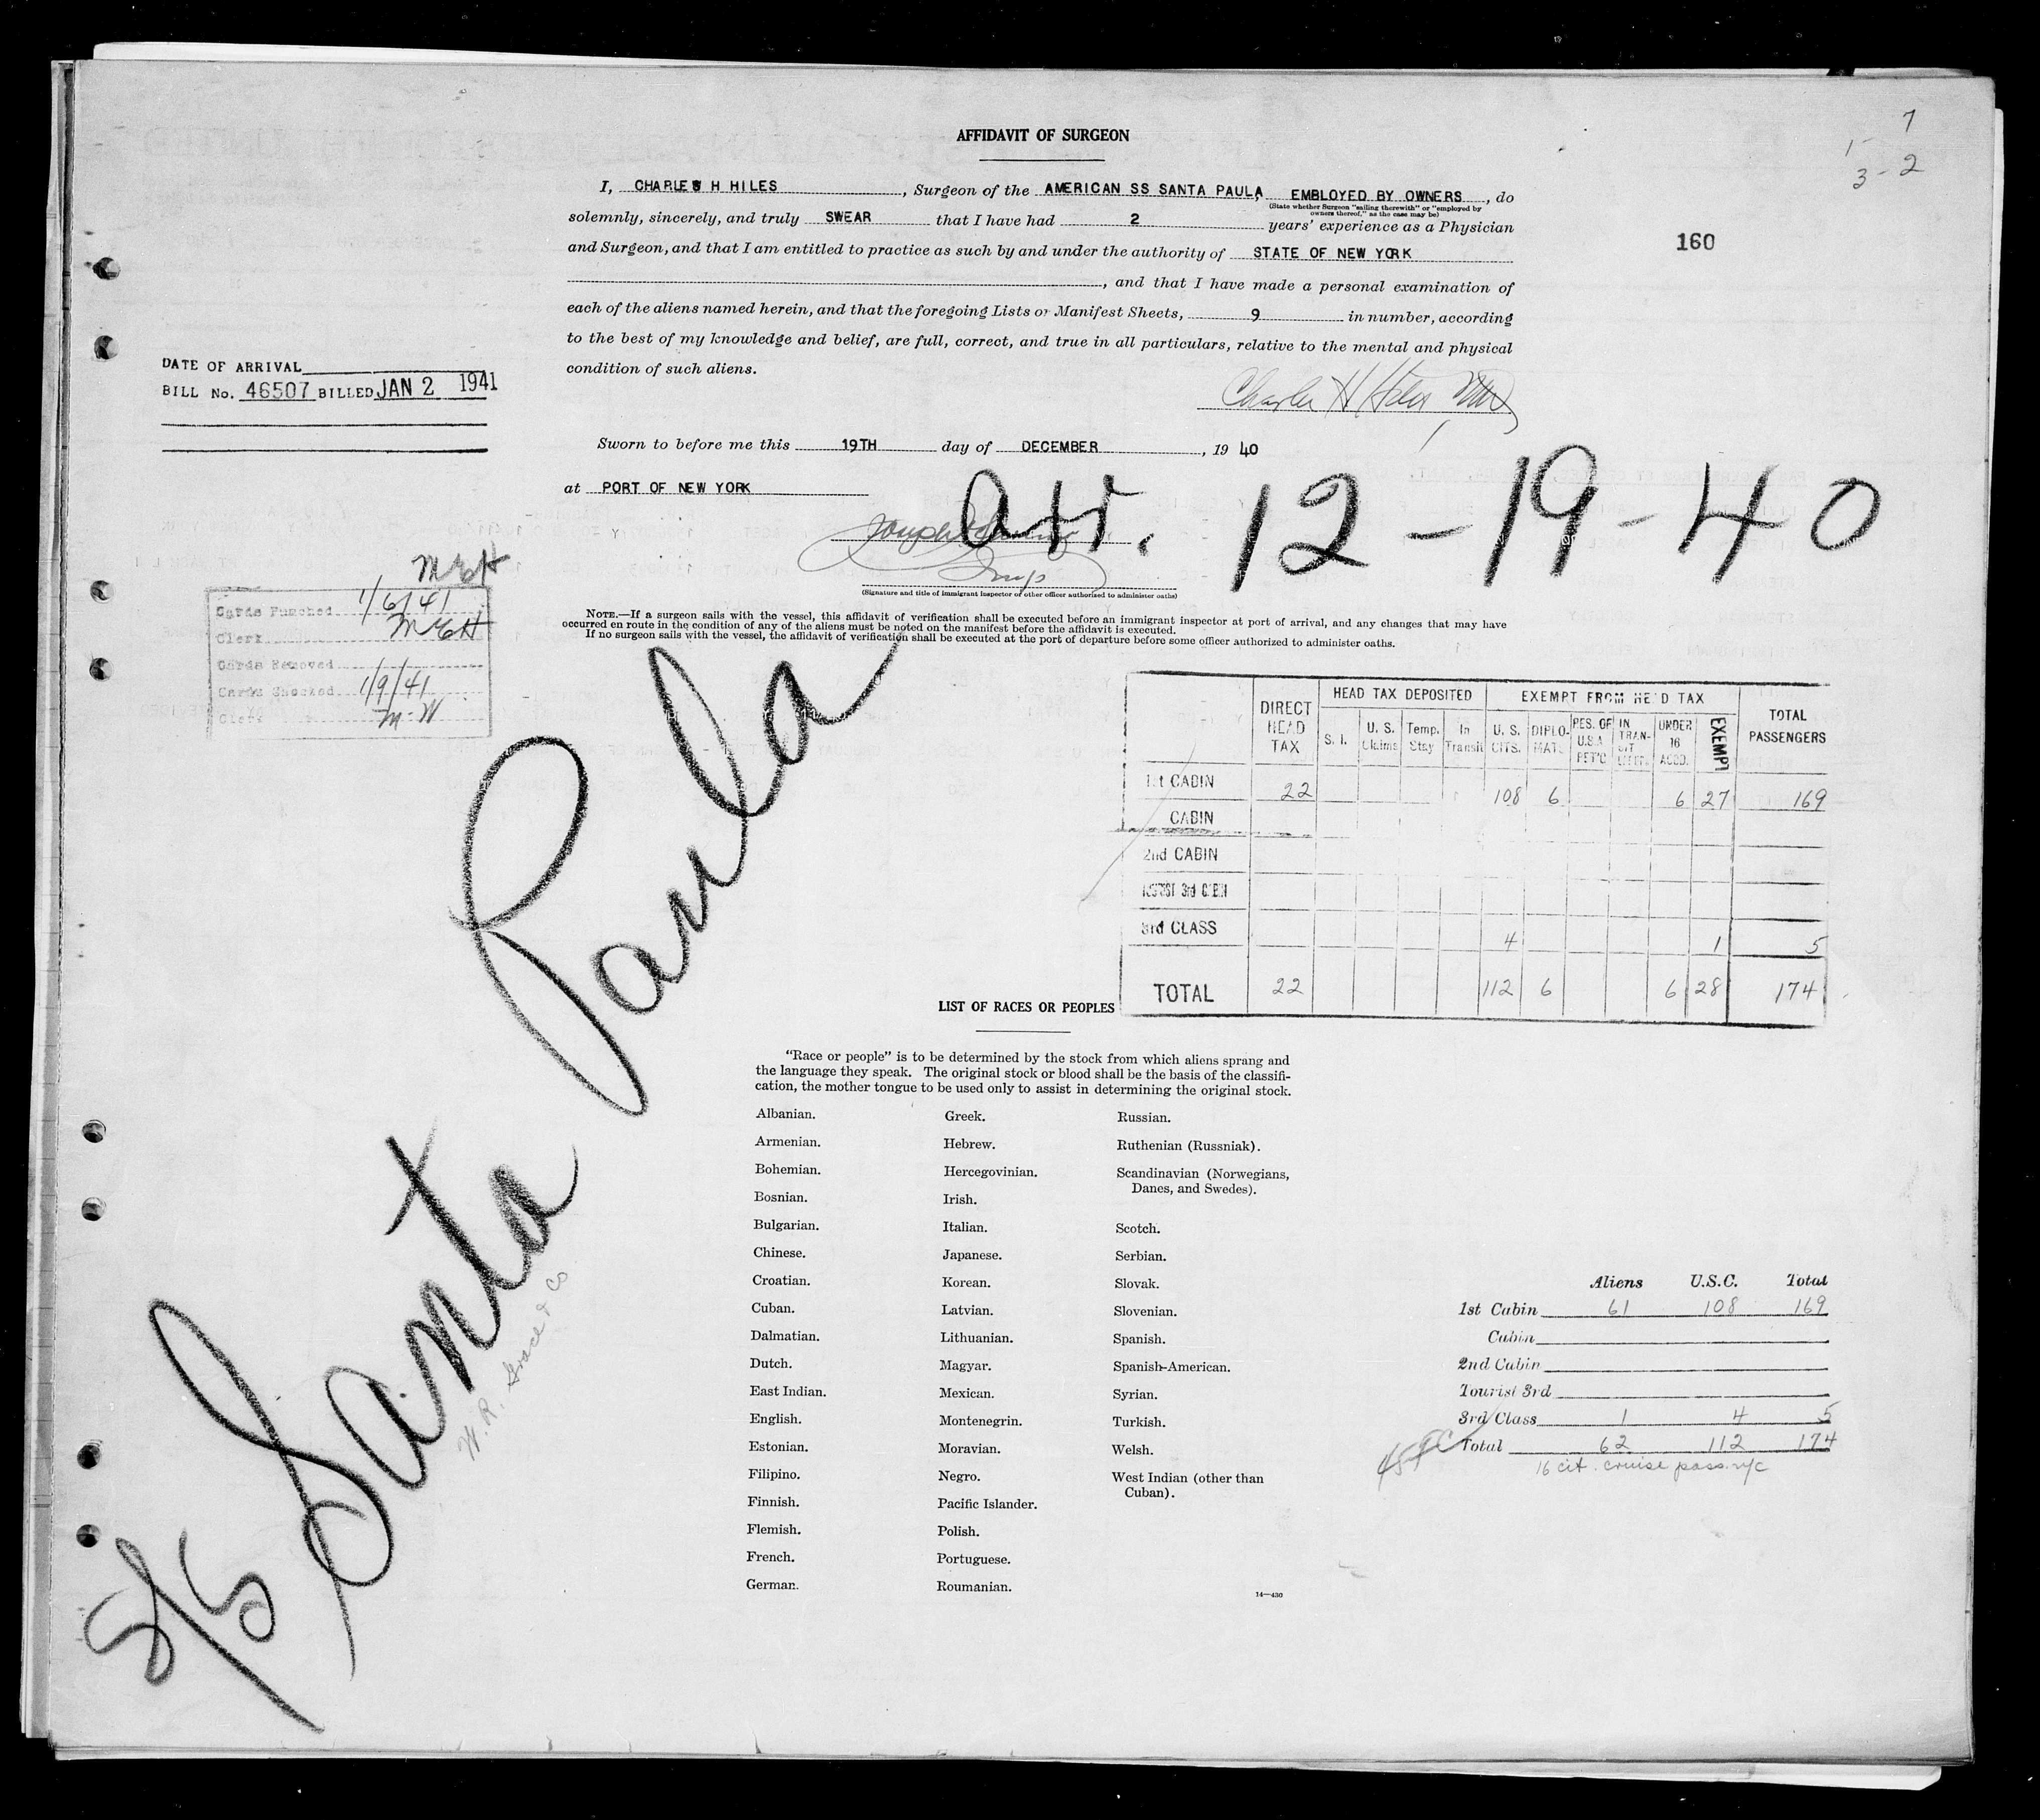 7
1-
3-2
AFFIDAVIT OF SURGEON
I, CHARLES H HILES, Surgeon of the AMERICAN SS SANTA PAULA, EMPLOYED BY OWNERS, do
(State whether Surgeon "sailing therewith" or "employed by
owners thereof," as the case may be)
solemnly, sincerely, and truly SWEAR that I have had 2 years' experience as a Physician
and Surgeon, and that I am entitled to practice as such by and under the authority of STATE OF NEW YORK
160
, and that I have made a personal examination of
each of the aliens named herein, and that the foregoing Lists or Manifest Sheets, 9 in number, according
to the best of my knowledge and belief, are full, correct, and true in all particulars, relative to the mental and physical
condition of such aliens.
DATE OF ARRIVAL
BILL No. 46507 BILLED JAN 2 1941
Charles H. Hiles MD
Sworn to before me this 19TH day of DECEMBER, 1940
at PORT OF NEW YORK
arr. 12-19-40
Joseph
Insp
(Signature and title of immigrant inspector or other officer authorized to administer oaths)
MEH
Cards Punched 1/6/41
Clerk MEH
Cards Removed
Cards Checked 1/9/41
Clerk M-W
NOTE.—If a surgeon sails with the vessel, this affidavit of verification shall be executed before an immigrant inspector at port of arrival, and any changes that may have
occurred en route in the condition of any of the aliens must be noted on the manifest before the affidavit is executed.
If no surgeon sails with the vessel, the affidavit of verification shall be executed at the port of departure before some officer authorized to administer oaths.
S/S Santa Paula
W. R. Grace & Co
DIRECT HEAD TAX HEAD TAX DEPOSITED EXEMPT FROM HEAD TAX TOTAL PASSENGERS
S. I. U. S. Claims Temp. Stay In Transit U. S. CITS. DIPLOMATS RES. OF U.S.A. RET'G IN TRANSIT UNDER 16 ACCD. EXEMPT
1st CABIN 22 108 6 6 27 169
CABIN
2nd CABIN
TOURIST 3rd CABIN
3rd CLASS 4 1 5
TOTAL 22 112 6 6 28 174
LIST OF RACES OR PEOPLES
"Race or people" is to be determined by the stock from which aliens sprang and
the language they speak. The original stock or blood shall be the basis of the classifi-
cation, the mother tongue to be used only to assist in determining the original stock.
Albanian.
Armenian.
Bohemian.
Bosnian.
Bulgarian.
Chinese.
Croatian.
Cuban.
Dalmatian.
Dutch.
East Indian.
English.
Estonian.
Filipino.
Finnish.
Flemish.
French.
German.
Greek.
Hebrew.
Hercegovinian.
Irish.
Italian.
Japanese.
Korean.
Latvian.
Lithuanian.
Magyar.
Mexican.
Montenegrin.
Moravian.
Negro.
Pacific Islander.
Polish.
Portuguese.
Roumanian.
Russian.
Ruthenian (Russniak).
Scandinavian (Norwegians,
Danes, and Swedes).
Scotch.
Serbian.
Slovak.
Slovenian.
Spanish.
Spanish-American.
Syrian.
Turkish.
Welsh.
West Indian (other than
Cuban).
14—430
Aliens U.S.C. Total
1st Cabin 61 108 169
Cabin
2nd Cabin
Tourist 3rd
3rd Class 1 4 5
Total 62 112 174
16 cit. cruise pass. n/c